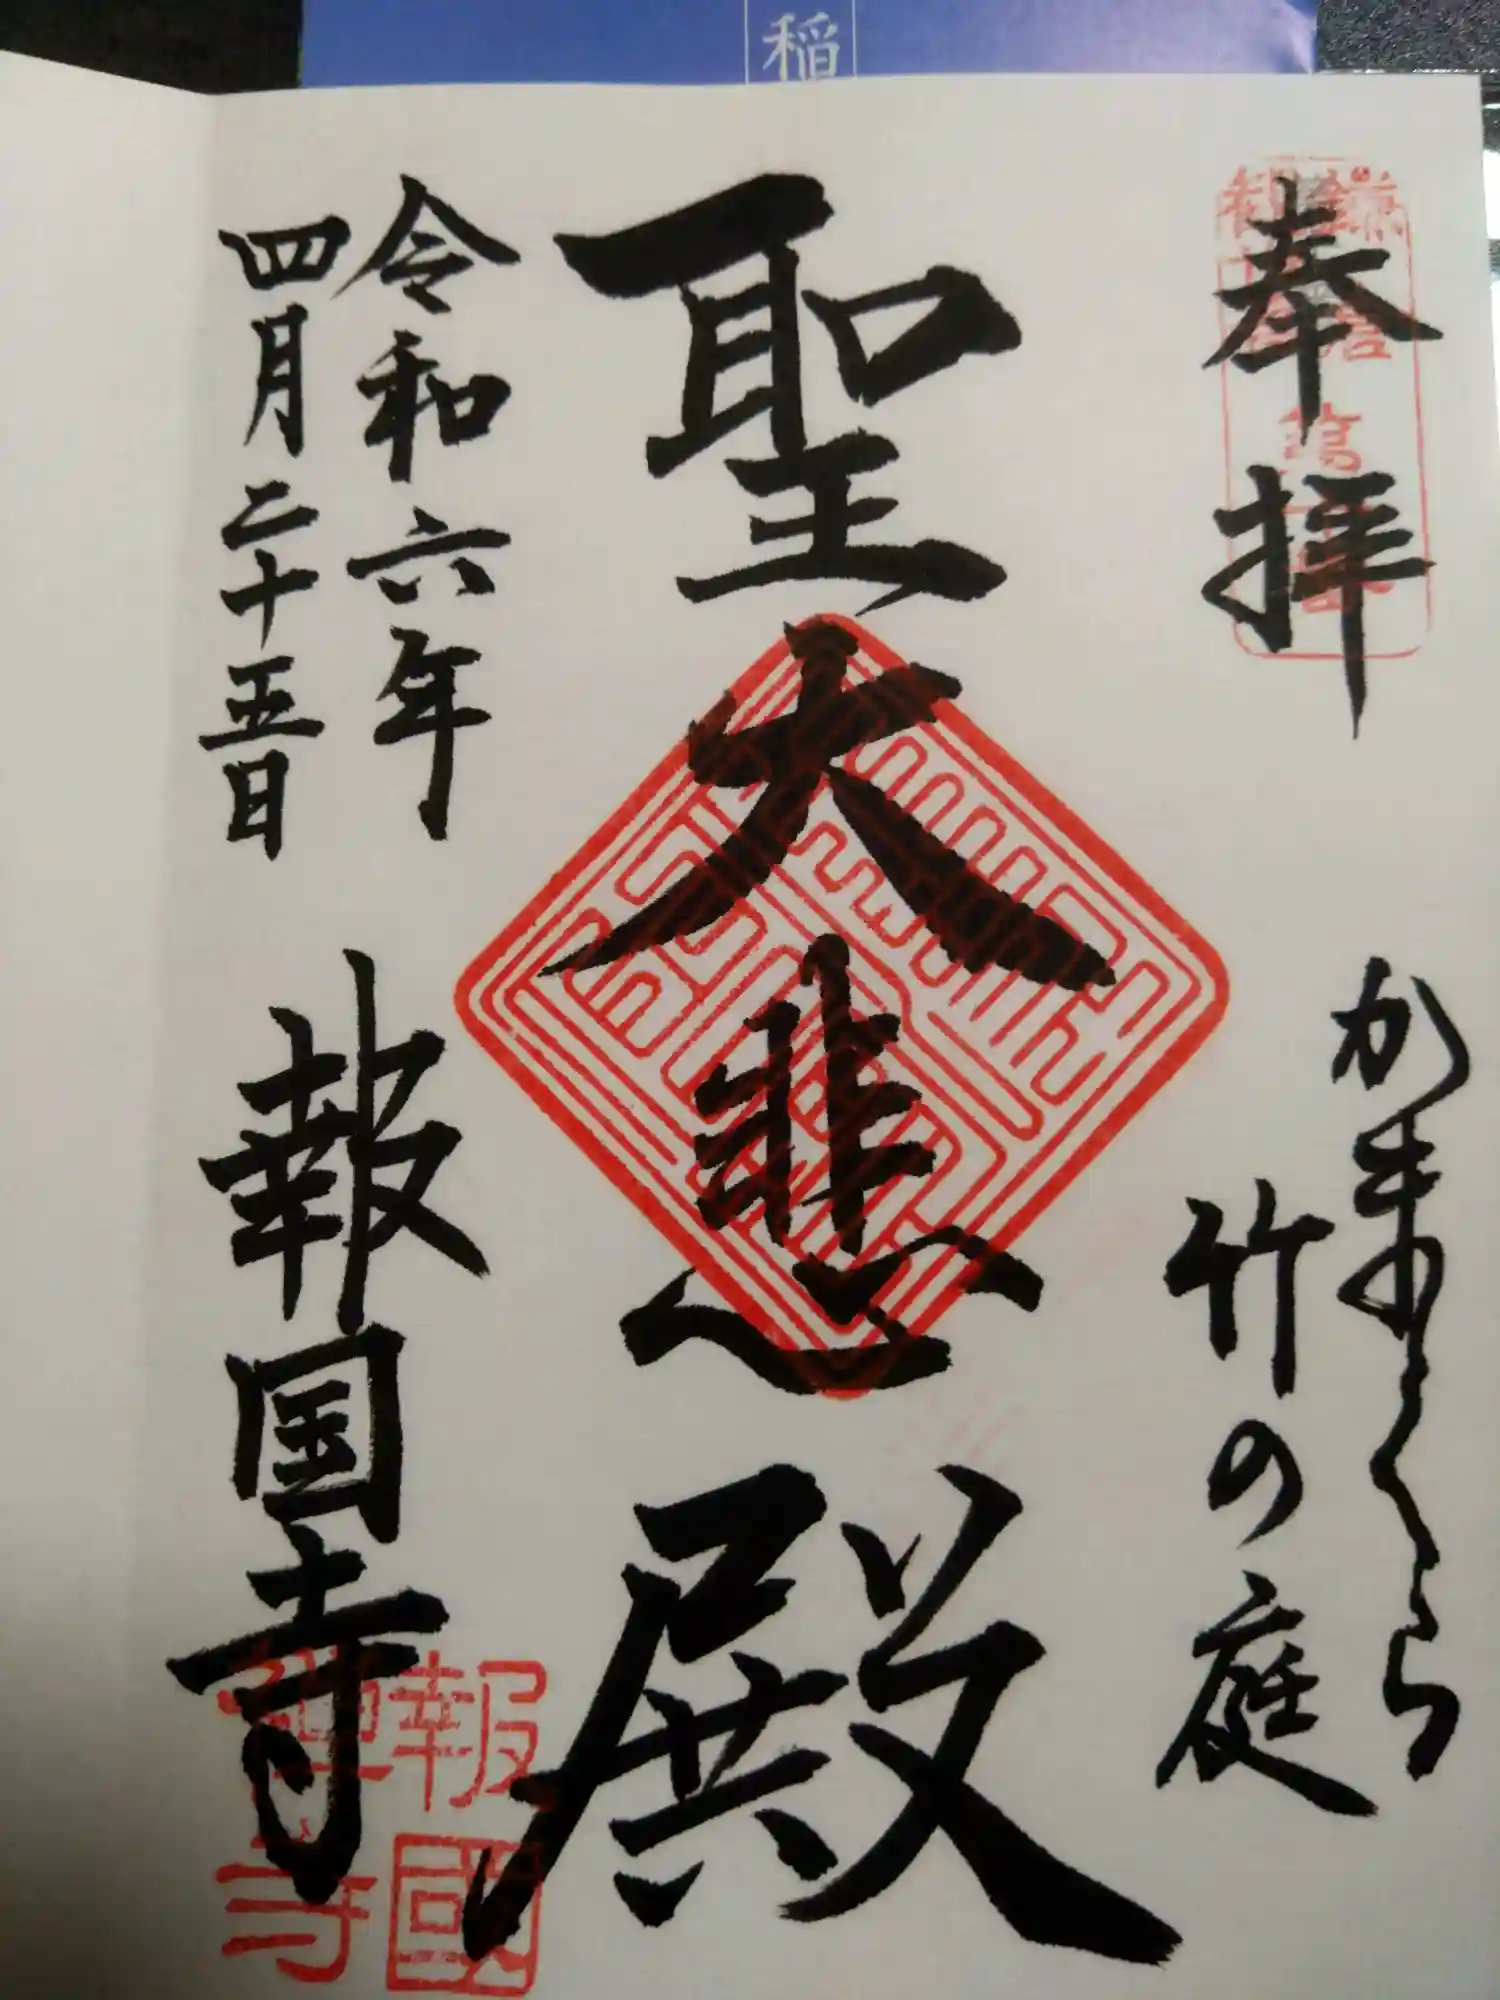 稲
奉拝
かまくら
竹の庭
聖大悲殿
令和六年
四月二十五日
報国寺
報國
禅寺